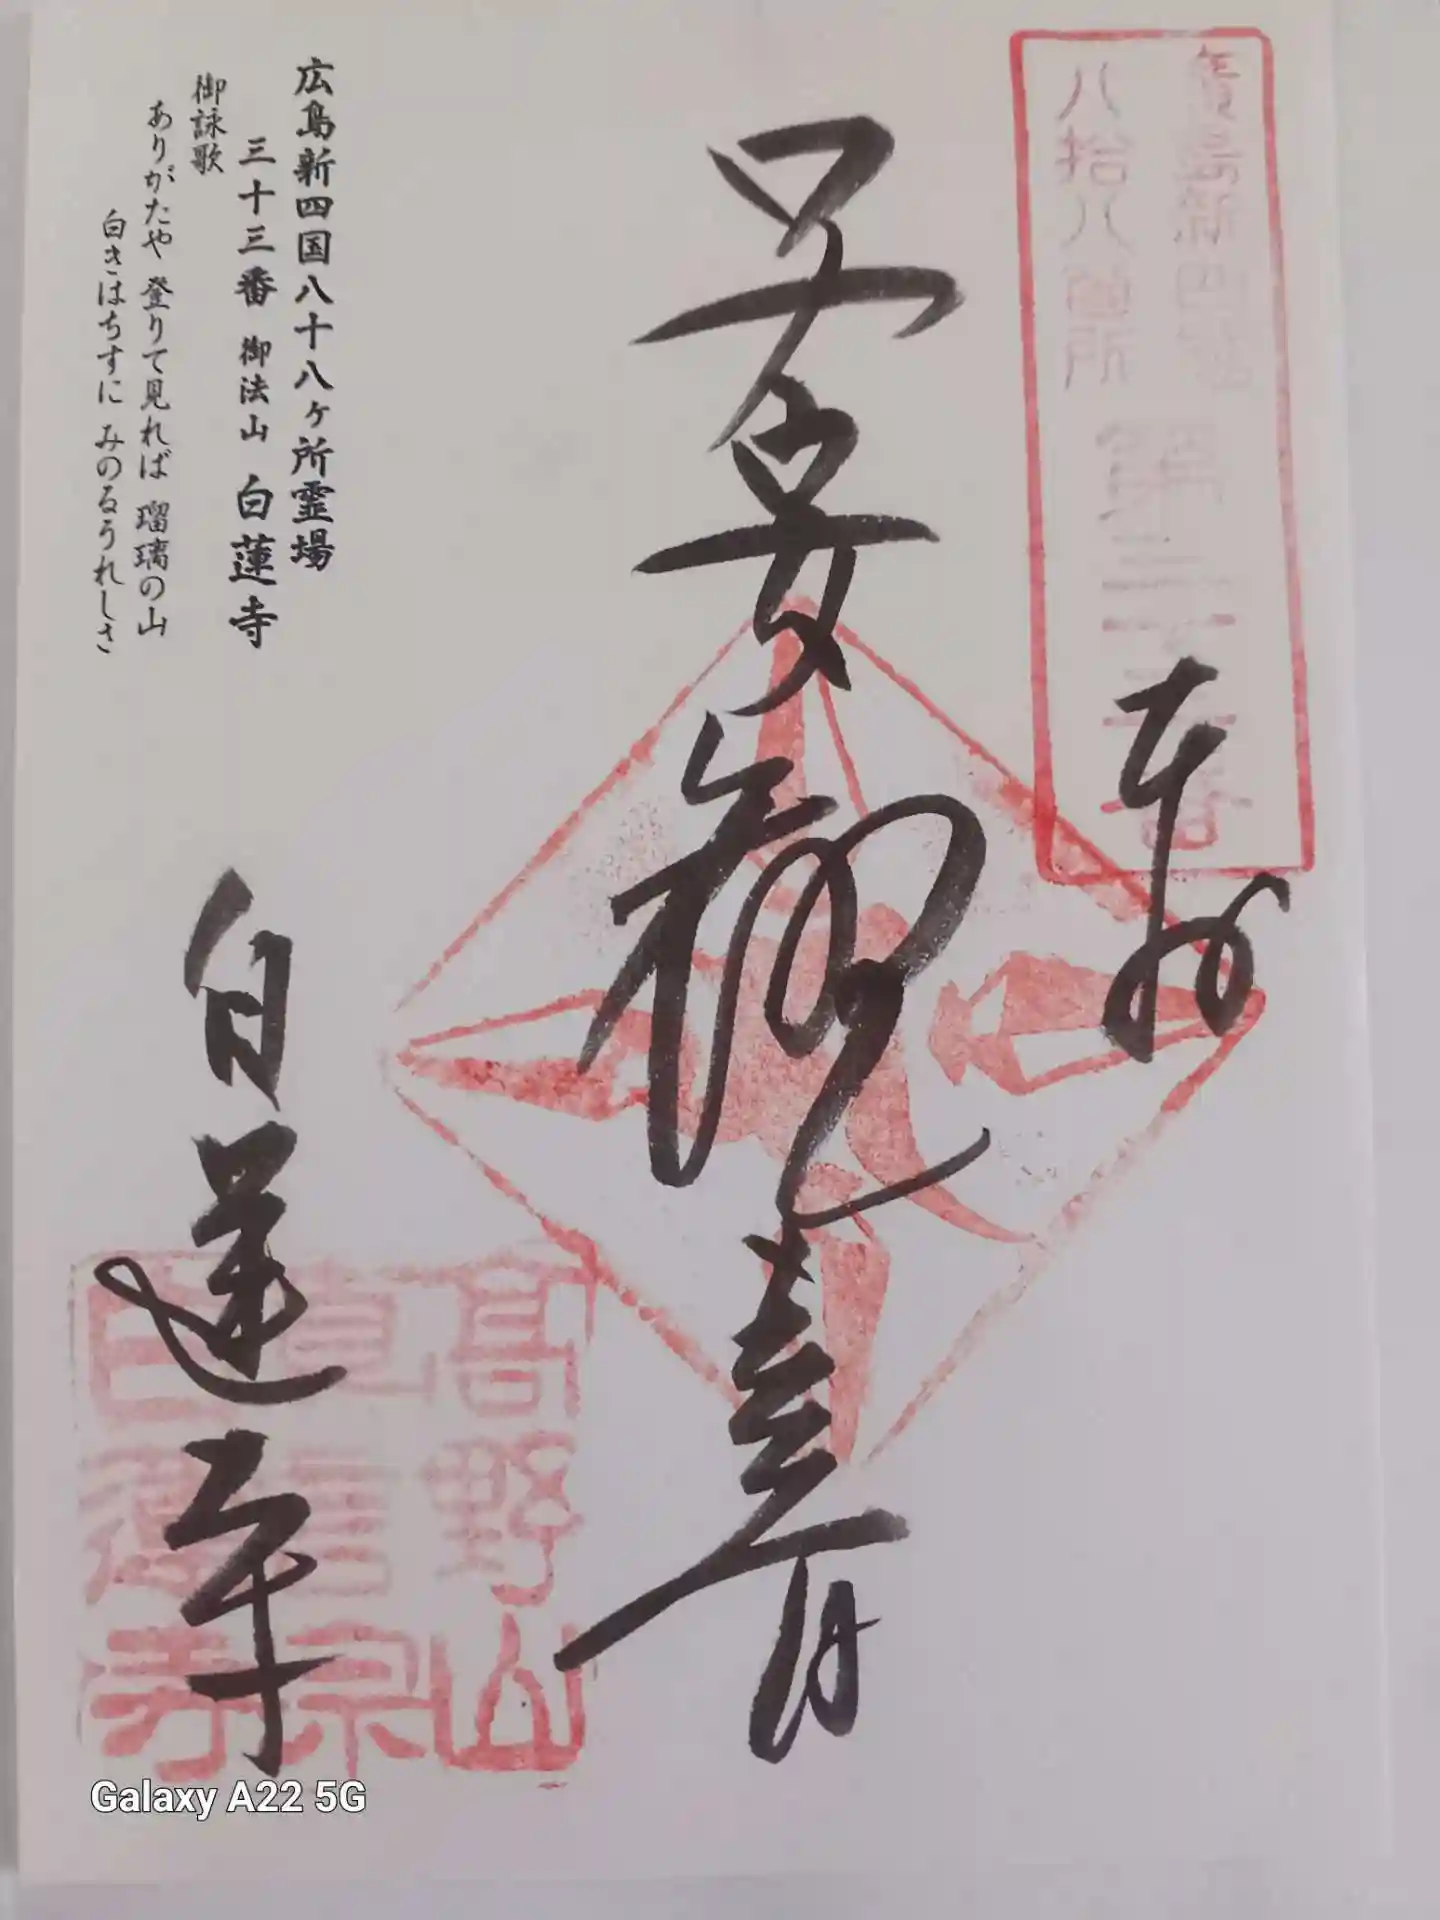 廣島新四國
八拾八箇所
第三十三番
奉拜
子安観音
広島新四国八十八ヶ所霊場
三十三番 御法山 白蓮寺
御詠歌
ありがたや 登りて見れば 瑠璃の山
白きはちすに みのるうれしさ
白蓮寺
高野山
真言宗
白蓮寺
Galaxy A22 5G